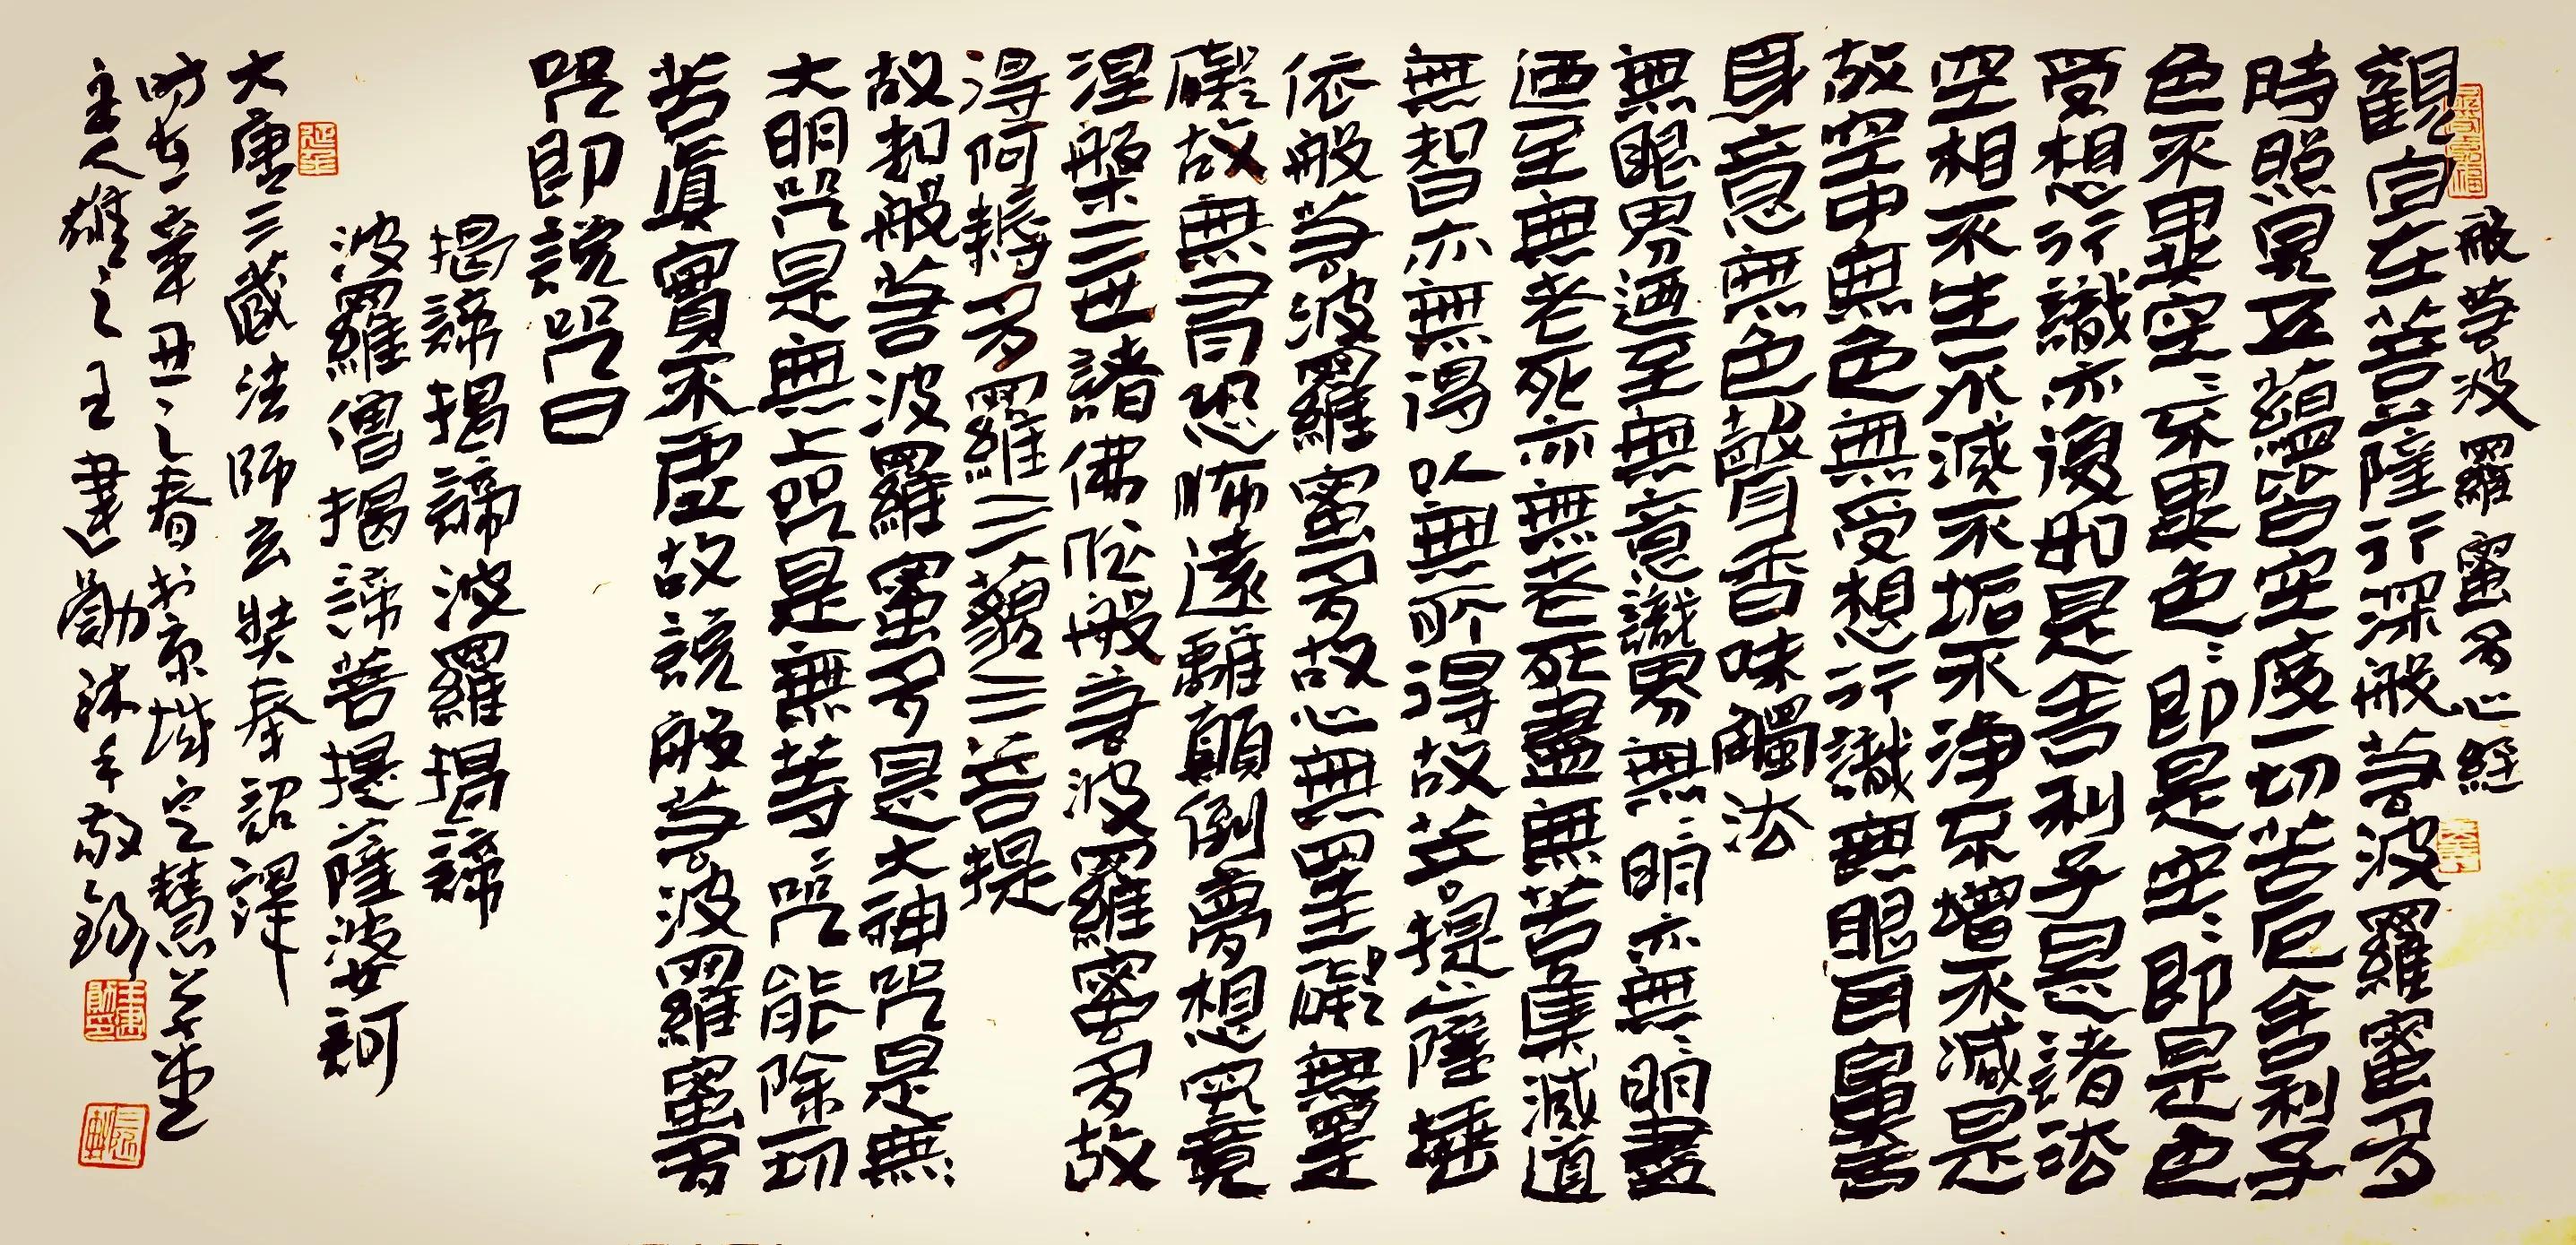 般若波羅蜜多心經
觀自在菩薩行深般若波羅蜜多
時照見五蘊皆空度一切苦厄舍利子
色不異空:不異色:即是空:即是色
受想行識亦復如是舍利子是諸法
空相不生不滅不垢不净不增不減是
故空中無色無受想行識無眼耳鼻舌
身意無色聲香味觸法
無眼界迺至無意識界無:明亦無:明盡
迺至無老死亦無老死盡無苦集滅道
無智亦無得以無所得故菩提薩埵
依般若波羅蜜多故心無罣礙無罣
礙故無有恐怖遠離顛倒夢想究竟
涅槃三世諸佛依般若波羅蜜多故
得阿耨多羅三藐三菩提
故知般若波羅蜜多是大神咒是
大明咒是無上咒是無等:咒能除一切
苦真實不虛故說般若波羅蜜多
咒即說咒曰
揭諦揭諦波羅揭諦
波羅僧揭諦菩提薩婆訶
大唐三藏法師玄奘奉詔譯
時在辛丑之春於京城定慧草堂
主人雄之王建勛沐手敬録